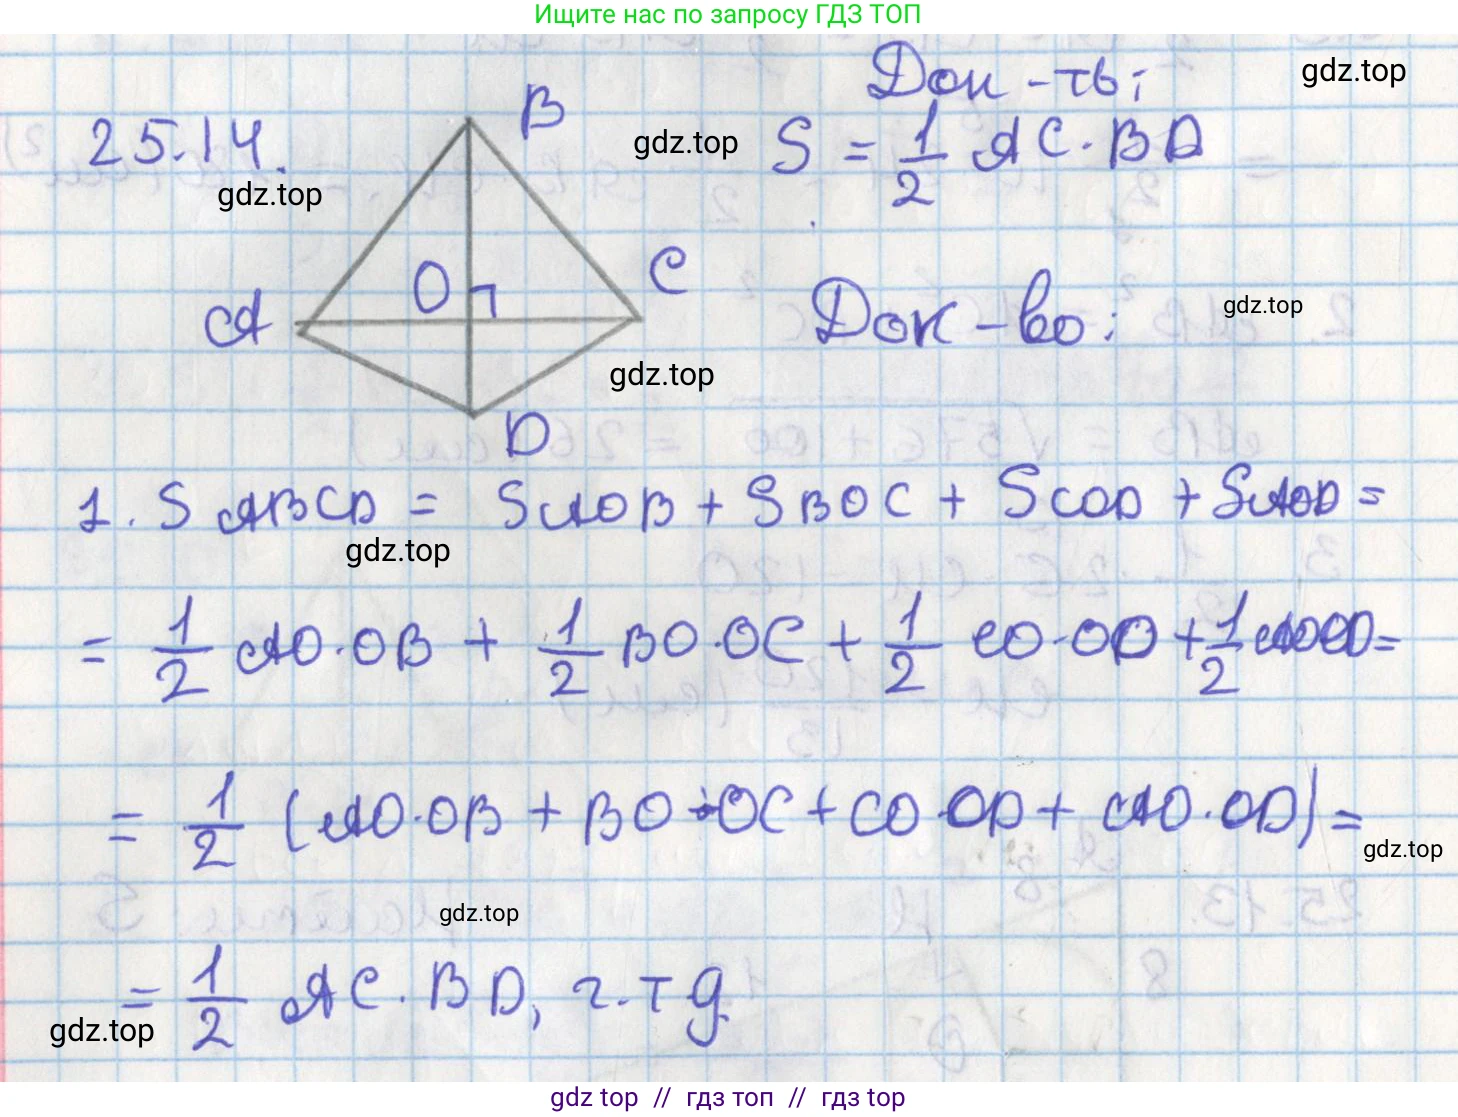 Ищите нас по запросу ГДЗ ТОП
Док-ть:
gdz.top
25.14.
B
gdz.top
S = 1/2 AC·BD
gdz.top
A
O
C
Док-во:
gdz.top
gdz.top
D
1. S ABCD = SAOB + SBOC + SCOD + SAOD =
gdz.top
= 1/2 AO·OB + 1/2 BO·OC + 1/2 CO·OD + 1/2 AOOD =
= 1/2 (AO·OB + BO·OC + CO·OD + AO·OD) =
gdz.top
gdz.top
= 1/2 AC·BD, ч.т д
gdz.top
gdz top // гдз топ // gdz top